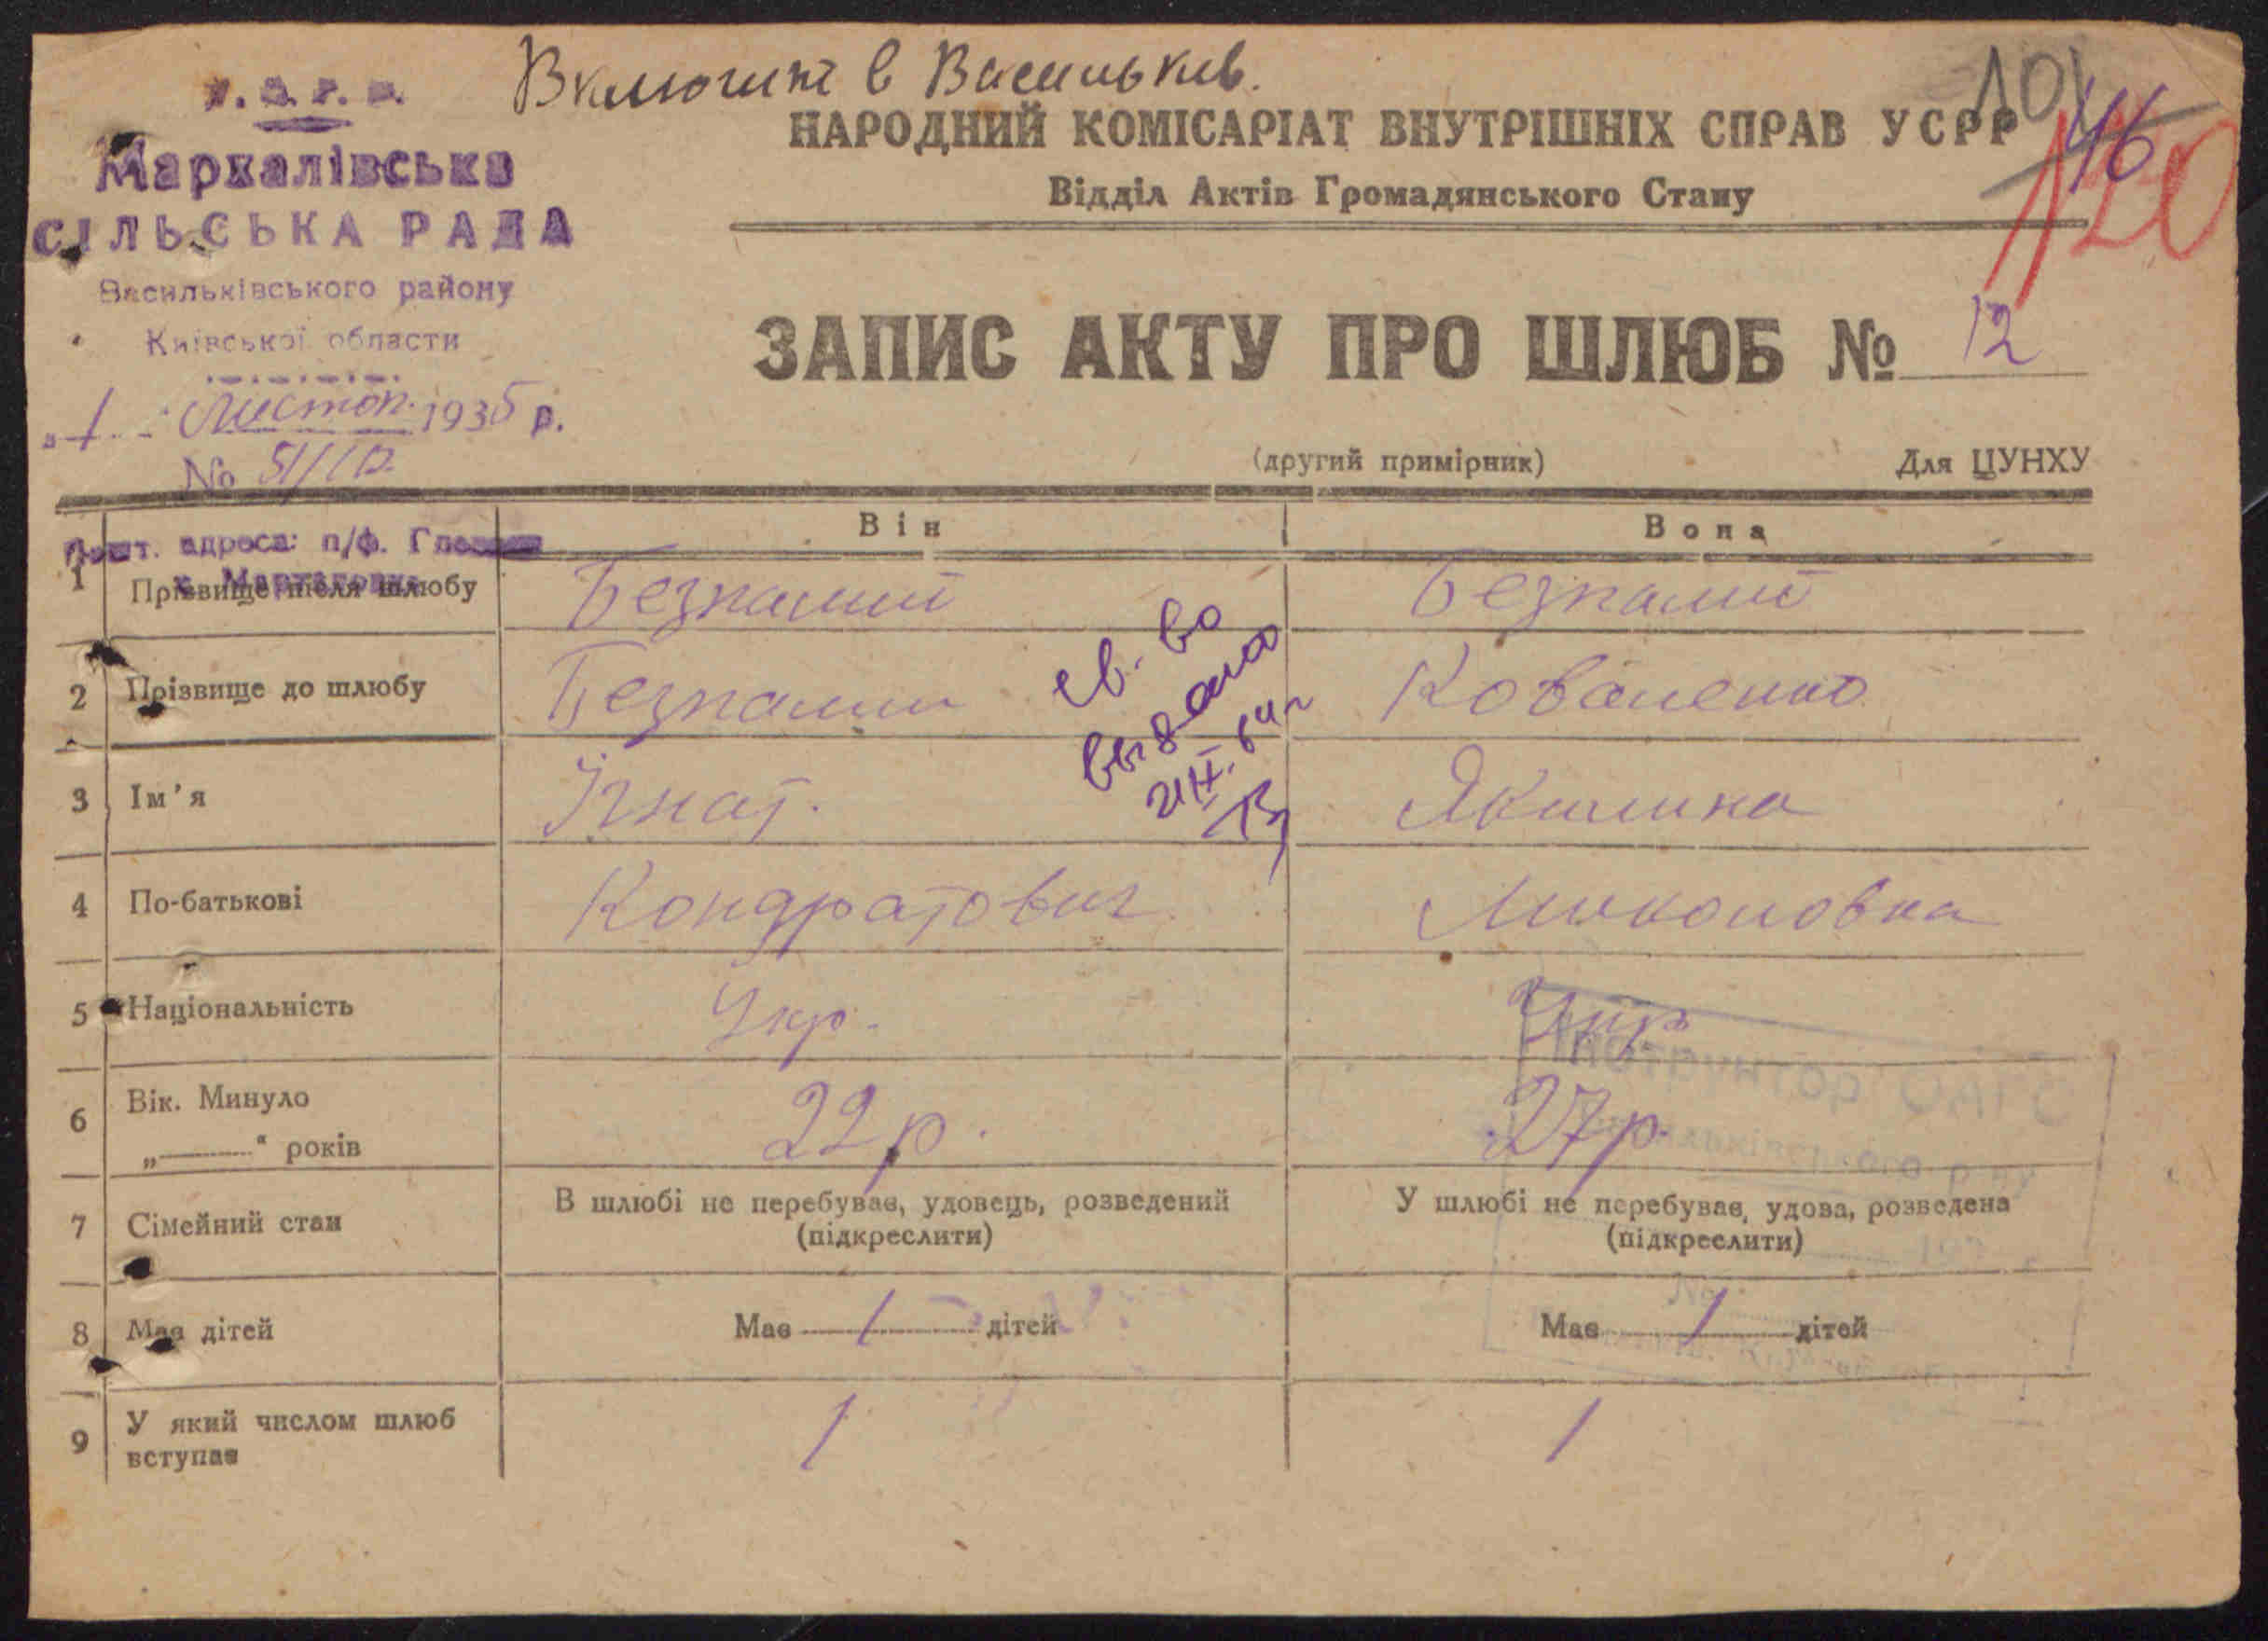 У.С.Р.Р.
Мархалівська
СІЛЬСЬКА РАДА
Васильківського району
Київської области
„1" Листоп. 1935 р.
№ 51/10
Пошт. адреса: п/ф.
Включить в Васильков.
101
46
120
НАРОДНИЙ КОМІСАРІАТ ВНУТРІШНІХ СПРАВ УСРР
Відділ Актів Громадянського Стану
ЗАПИС АКТУ ПРО ШЛЮБ № 12
(другий примірник) Для ЦУНХУ
Він Вона
1 Прізвище після шлюбу Безпалий Безпалий
2 Прізвище до шлюбу Безпалий Коваленко
св-во
выдано
3 Ім’я Ігнат. Якилина
4 По-батькові Кондратович Миколовна
5 Національність Укр. Укр.
6 Вік. Минуло
„——“ років 22 р. 27 р.
7 Сімейний стан В шлюбі не перебував, удовець, розведений
(підкреслити)
У шлюбі не перебував, удова, розведена
(підкреслити)
8 Має дітей Має 1 дітей Має 1 дітей
9 У який числом шлюб
вступає 1 1